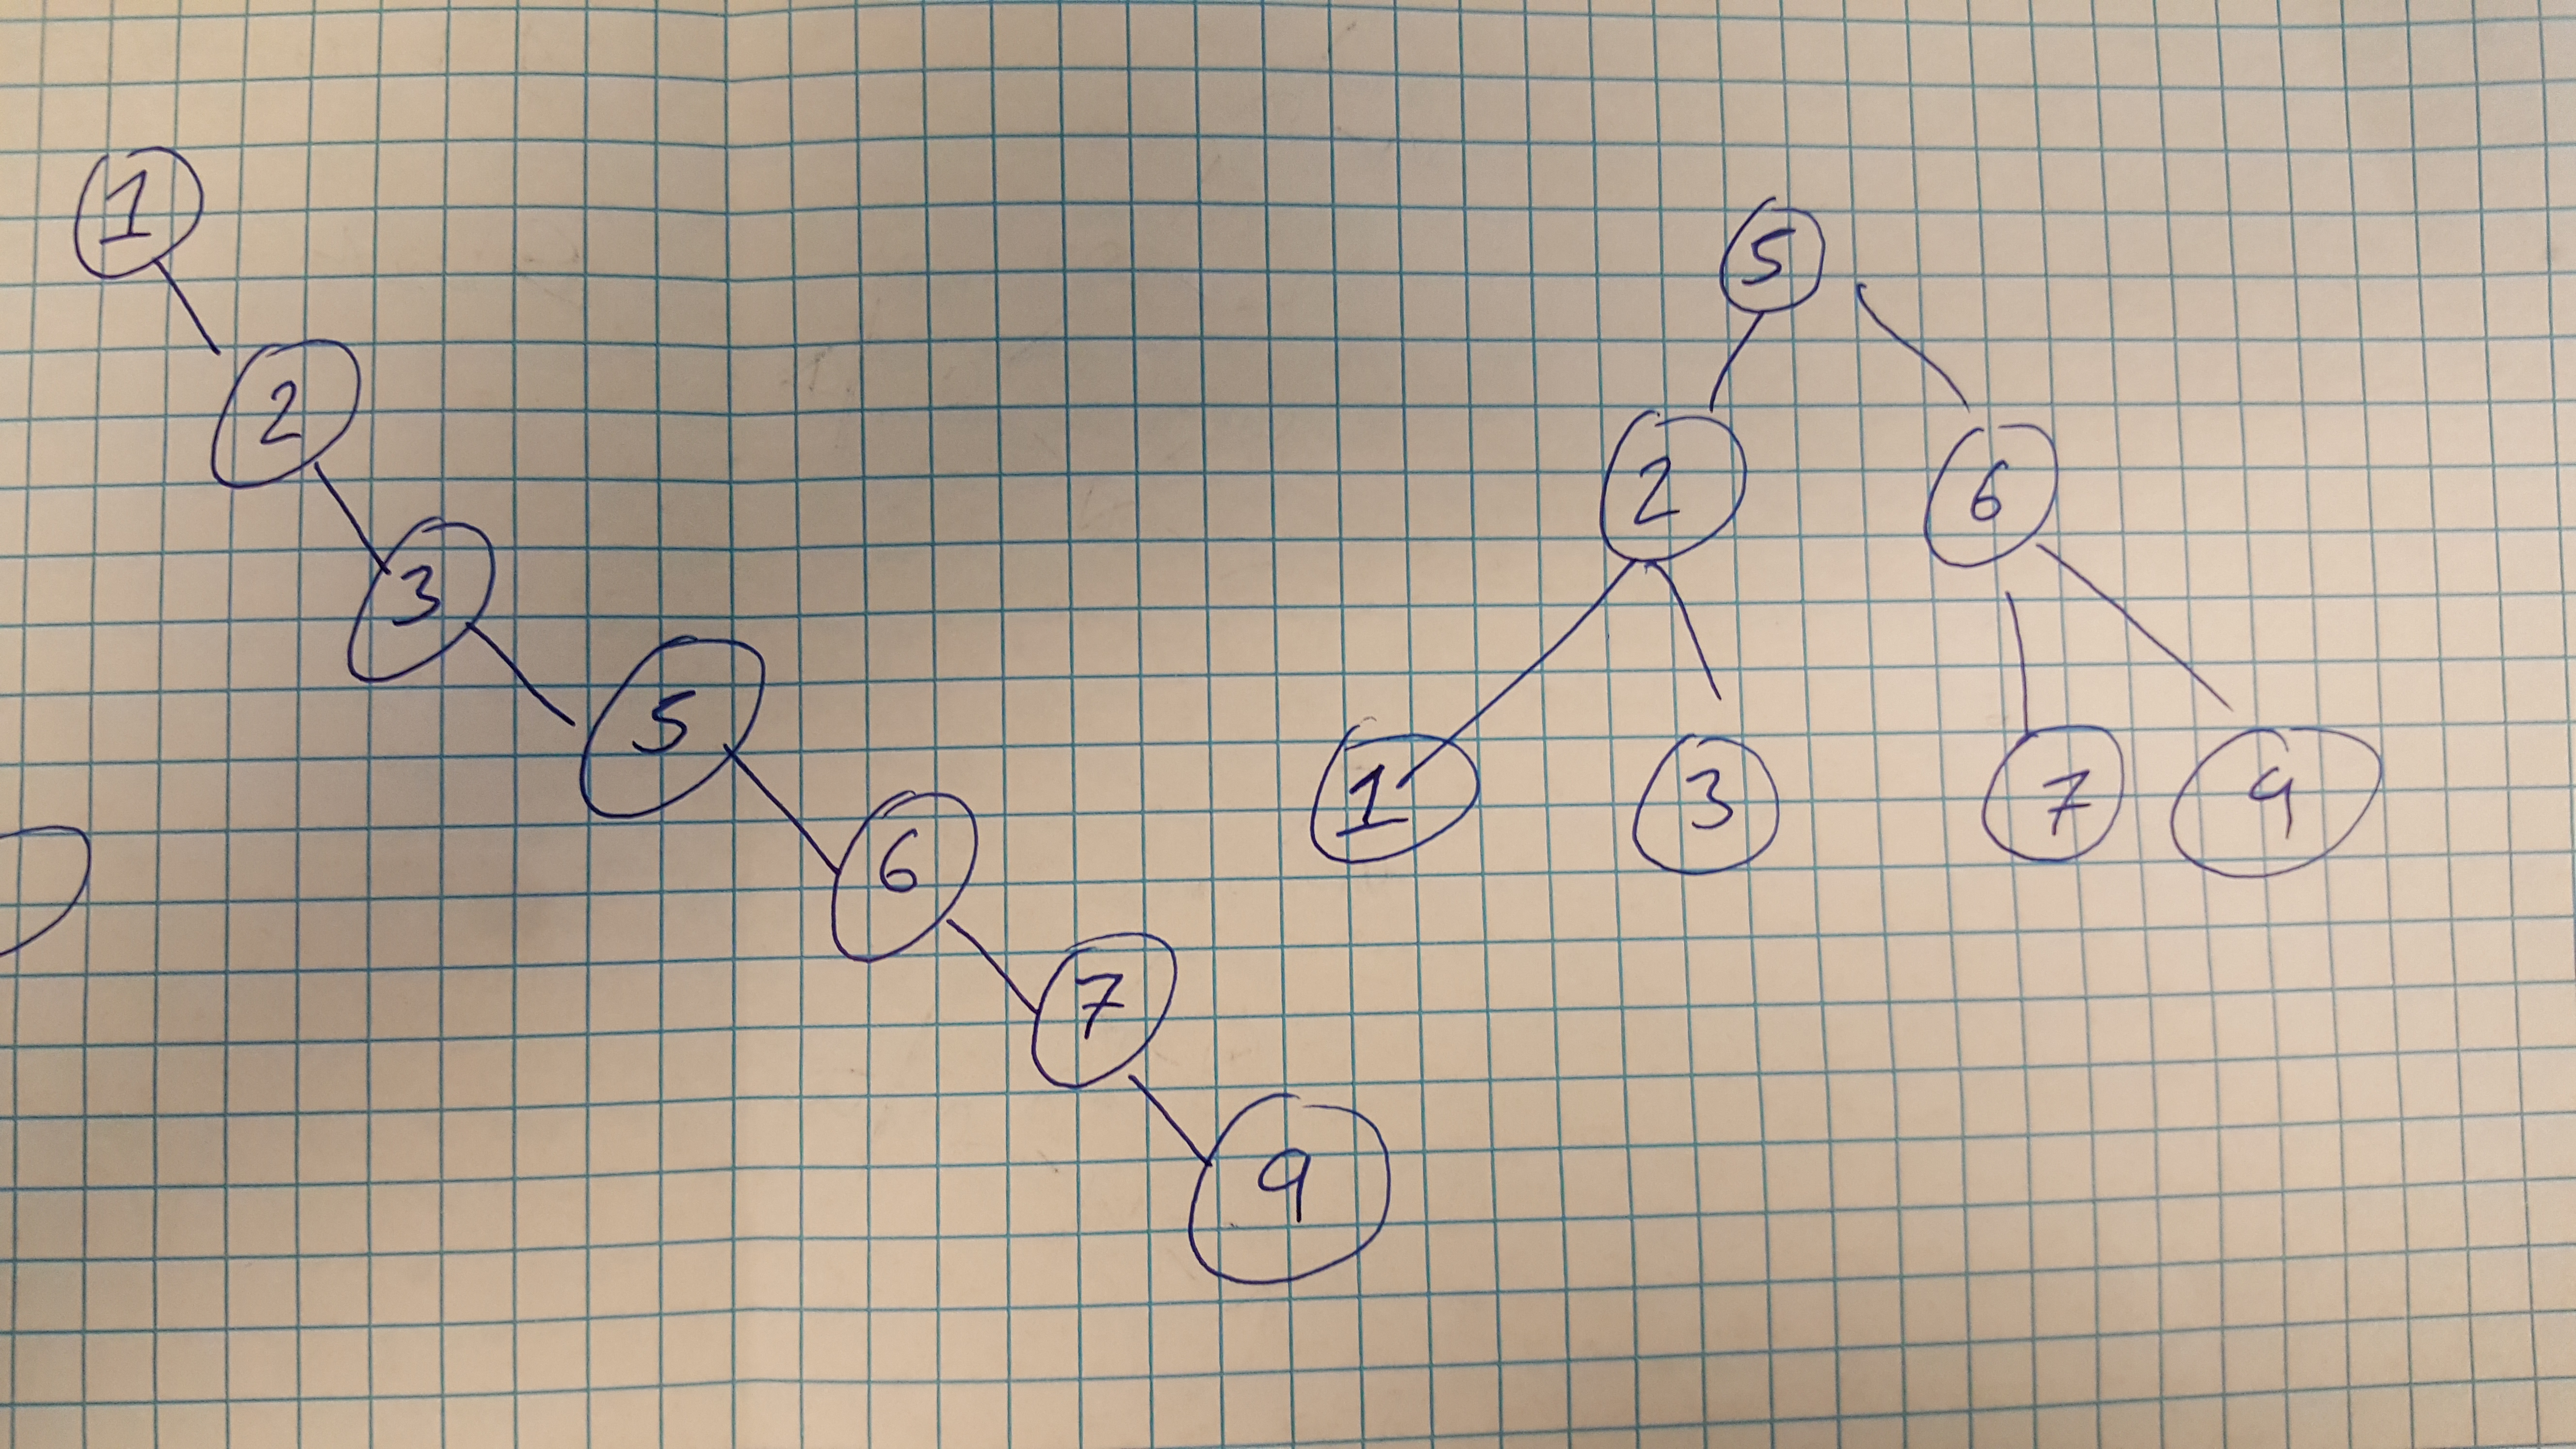 1
2
3
5
6
7
9
5
2 6
1 3 7 9